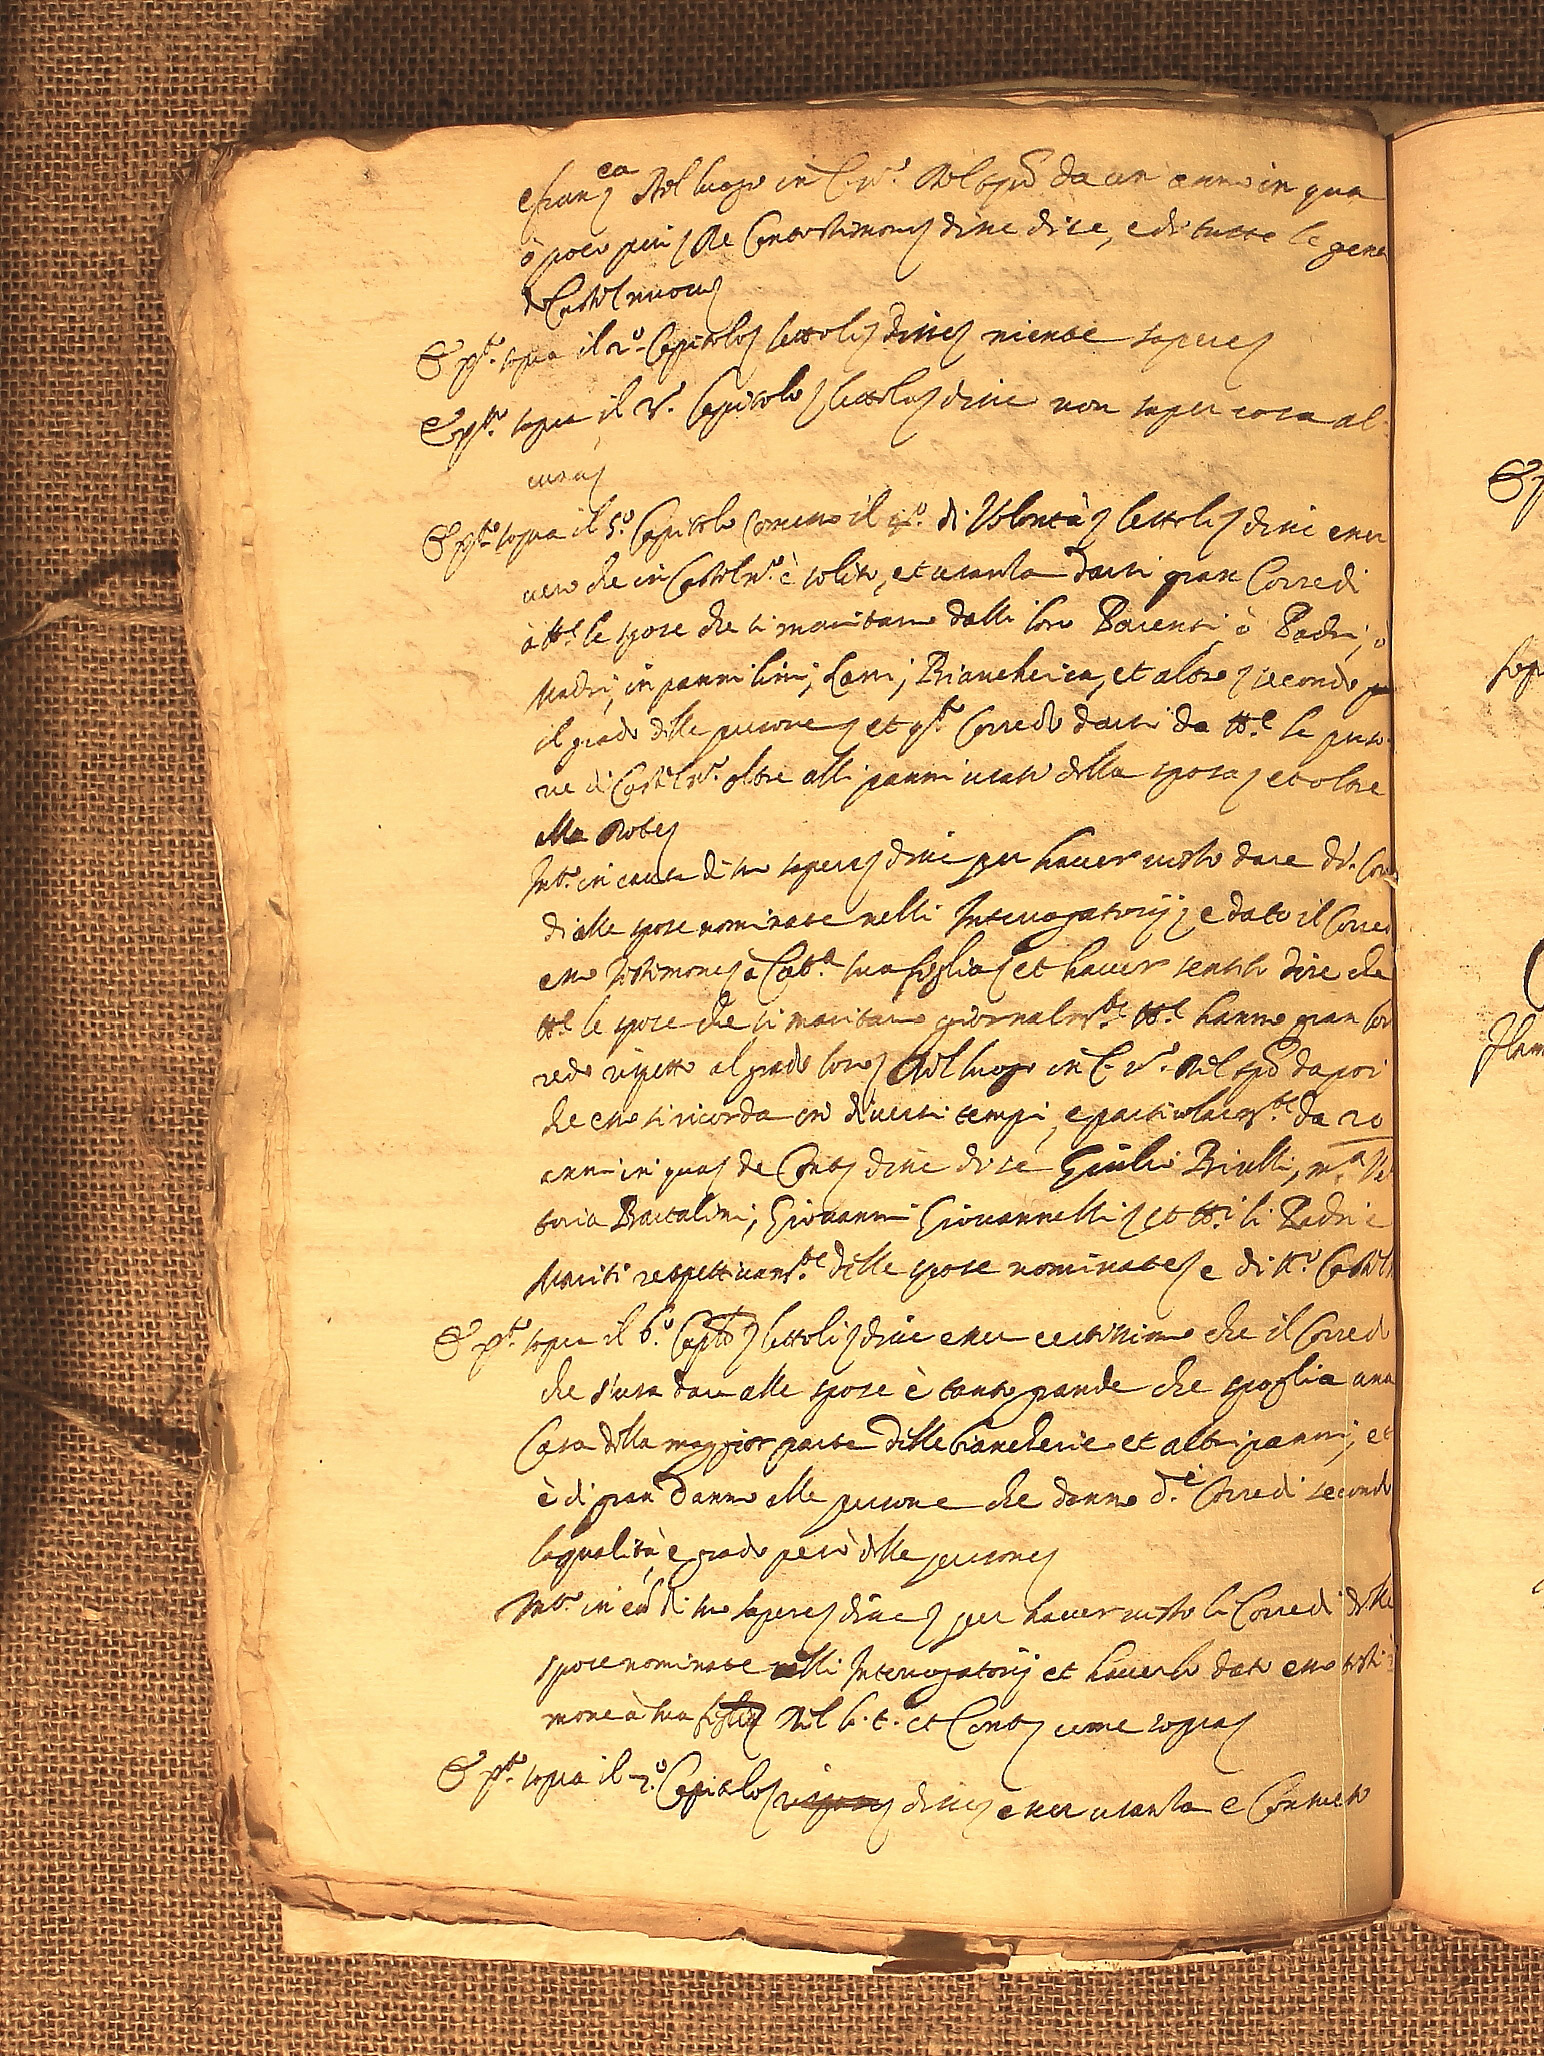 e fran.ca Nel luogo in C. n.o Nel tpō da un anno in qua
ò poco più, De Contestimonij disse dire, e di tutte le gene
di Castelnuovo
Et p.to sopra il 2.o Capitolo lettoli disse niente sapere
Et p.to sopra il Capitolo lettoli disse non saper cosa al-
cuna
Et p.to sopra il 5.o Capitolo omesso il 4.o di Volontà lettoli disse esser
vero che in Casteln.o è solito, et usanza darsi gran Corredi
à tt.e le spose che si maritano dalli loro Parenti, ò Padri, ò
Madri, in panni lini, Lani, Biancheria, et altro secondo
il grado delle persone et q.to Corredo darsi da tt.e le perso-
ne di Casteln.o oltre alli panni usati della sposa et oltre
alla Robe
Int.o in causa di suo sapere disse per haver visto dare d.i Corre
di alle spose nominate nelli Interrogatorij, e dato il Corredo
esso testimone à Catt.a sua figlia et haver sentito dire che
tt.e le spose che si maritano giornalm.te tt.e hanno gran Cor
redo rispetto al grado loro Nel luogo in C. n.o Nel tpō da poi
che esso si ricorda in diversi tempi, e particularm.te da 20
anni in qua, de Cont. disse dire Giulio Brielli, m.a Vet
toria Bartalini, Giovanni Giovannelli et tt.i li Padri e
Mariti respettivam.te delle spose nominate e di tt.o Casteln
Et p.to sopra il 6.o Capt.o lettoli disse esser certissimo che il Corredo
che s'usa dare alle spose è tanto grande che spoglia una
Casa della maggior parte delle biancherie et altri panni, et
è di gran danno alle persone che danno d.i Corredi secondo
la qualità, e grado però delle persone
Int.o in cāu di suo sapere disse per haver visto li Corredi delle
spose nominate nelli Interrogatorij et haverlo dato esso testi
mone à sua figlia Nel l. t. et Cont. come sopra
Et p.to sopra il 7.o Capitolo disse esser usanza e Consueto